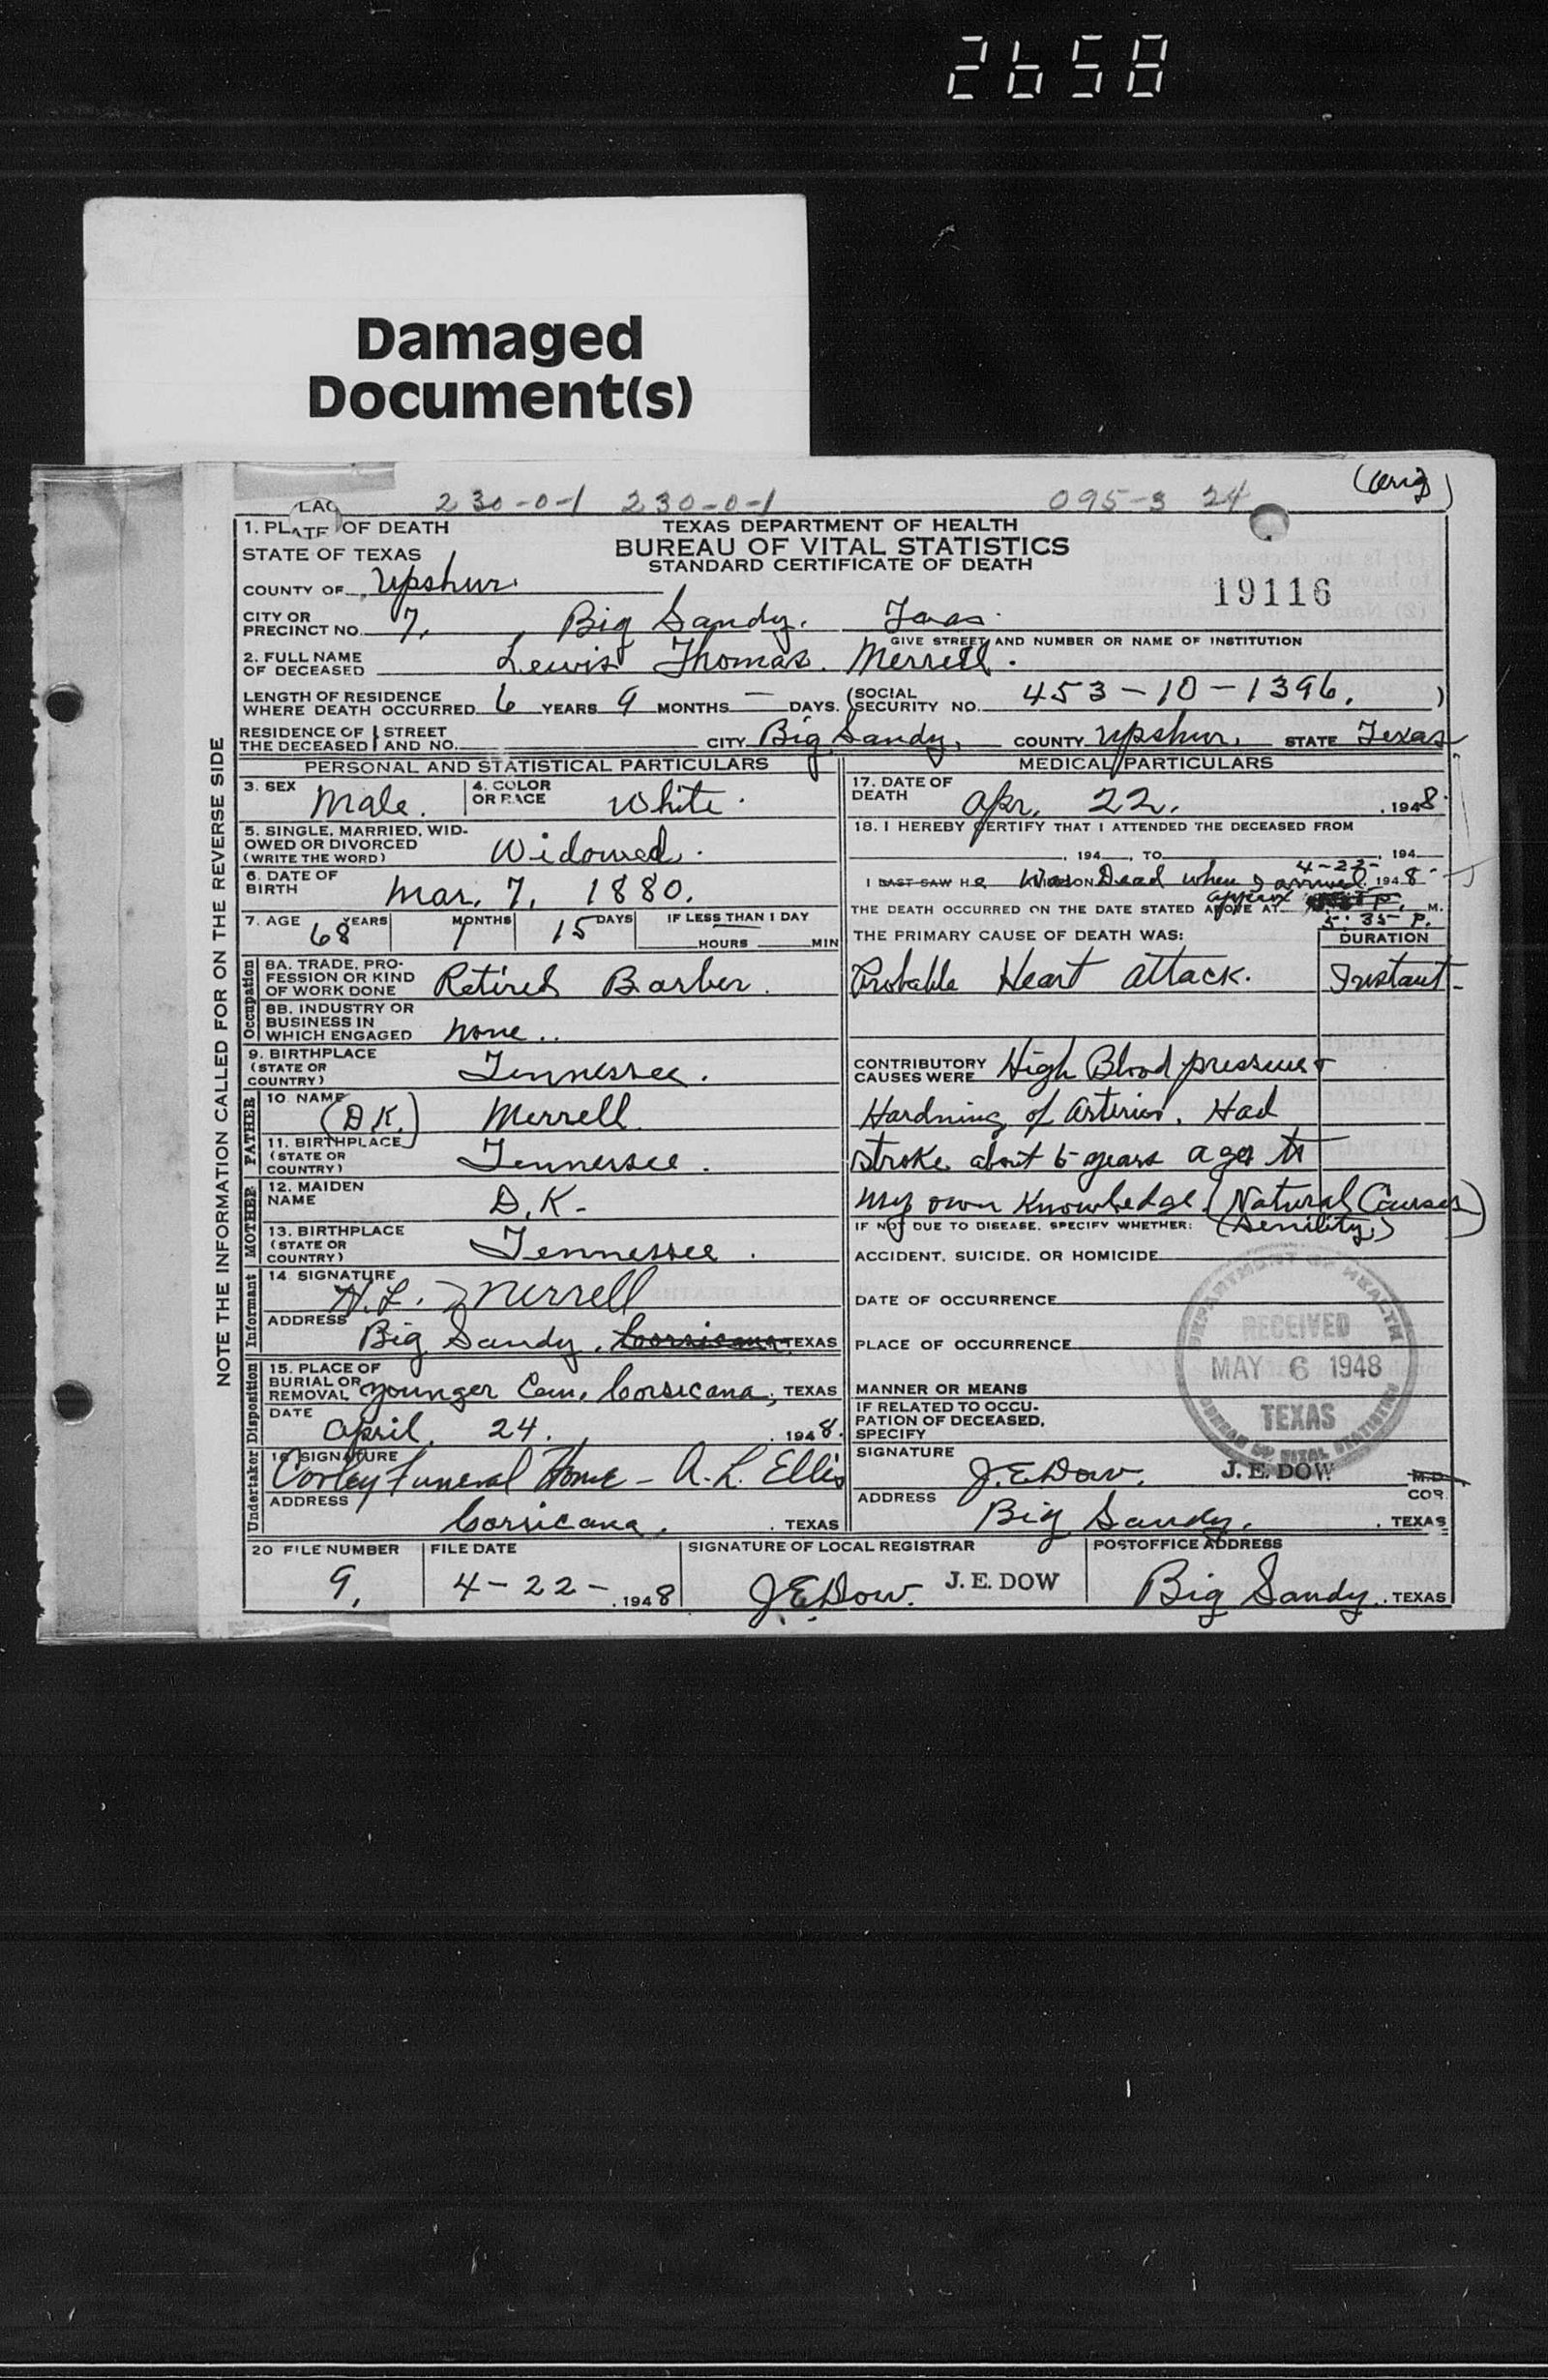 2658
Damaged
Document(s)
(Orig)
230-0-1 230-0-1 095-3 24
LAC
ATE
1. PL OF DEATH
STATE OF TEXAS
COUNTY OF Upshur.
TEXAS DEPARTMENT OF HEALTH
BUREAU OF VITAL STATISTICS
STANDARD CERTIFICATE OF DEATH
19116
CITY OR
PRECINCT NO. 7, Big Sandy.
GIVE STREET AND NUMBER OR NAME OF INSTITUTION
2. FULL NAME
OF DECEASED Lewis Thomas. Merrell.
LENGTH OF RESIDENCE
WHERE DEATH OCCURRED 6 YEARS 9 MONTHS — DAYS. (SOCIAL SECURITY NO. 453-10-1396. )
RESIDENCE OF THE DECEASED STREET AND NO. CITY Big Sandy, COUNTY Upshur. STATE Texas
NOTE THE INFORMATION CALLED FOR ON THE REVERSE SIDE
PERSONAL AND STATISTICAL PARTICULARS
3. SEX Male. 4. COLOR OR RACE White.
5. SINGLE, MARRIED, WID-
OWED OR DIVORCED
(WRITE THE WORD) Widowed.
6. DATE OF
BIRTH Mar. 7, 1880.
7. AGE 68 YEARS 1 MONTHS 15 DAYS IF LESS THAN 1 DAY
HOURS MIN
Occupation
8A. TRADE, PRO-
FESSION OR KIND
OF WORK DONE Retired Barber.
8B. INDUSTRY OR
BUSINESS IN
WHICH ENGAGED None..
9. BIRTHPLACE
(STATE OR
COUNTRY) Tennessee.
FATHER
10. NAME (D.K.) Merrell
11. BIRTHPLACE
(STATE OR
COUNTRY) Tennessee.
MOTHER
12. MAIDEN
NAME D.K.-
13. BIRTHPLACE
(STATE OR
COUNTRY) Tennessee.
Informant
14. SIGNATURE
Merrell
ADDRESS Big Sandy, Corsicana TEXAS
Disposition
15. PLACE OF
BURIAL OR
REMOVAL Younger Cem, Corsicana, TEXAS
DATE April. 24. , 1948.
Undertaker
16 SIGNATURE
Corley Funeral Home - A. L. Ellis
ADDRESS
Corsicana. , TEXAS
MEDICAL PARTICULARS
17. DATE OF
DEATH Apr. 22. , 1948.
18. I HEREBY CERTIFY THAT I ATTENDED THE DECEASED FROM
, 194 , TO , 194
4-22-
I LAST SAW He Was ON Dead when I arrived, 1948
THE DEATH OCCURRED ON THE DATE STATED ABOVE AT approx M.
5:35 P.
THE PRIMARY CAUSE OF DEATH WAS: DURATION
Probable Heart attack. Instant-
CONTRIBUTORY
CAUSES WERE High Blood pressure +
Hardning of Arteries. Had
stroke about 6 years ago to
my own Knowledge. (Natural Causes)
IF NOT DUE TO DISEASE, SPECIFY WHETHER: (Senility.)
ACCIDENT, SUICIDE, OR HOMICIDE
DATE OF OCCURRENCE
PLACE OF OCCURRENCE
MANNER OR MEANS
IF RELATED TO OCCU-
PATION OF DECEASED,
SPECIFY
DEPARTMENT OF HEALTH
RECEIVED
MAY 6 1948
TEXAS
BUREAU OF VITAL STATISTICS
SIGNATURE J.E. Dow. J. E. DOW M.D.
COR.
ADDRESS Big Sandy. , TEXAS
20 FILE NUMBER FILE DATE SIGNATURE OF LOCAL REGISTRAR POSTOFFICE ADDRESS
9, 4-22- , 1948 J.E. Dow. J. E. DOW Big Sandy. , TEXAS